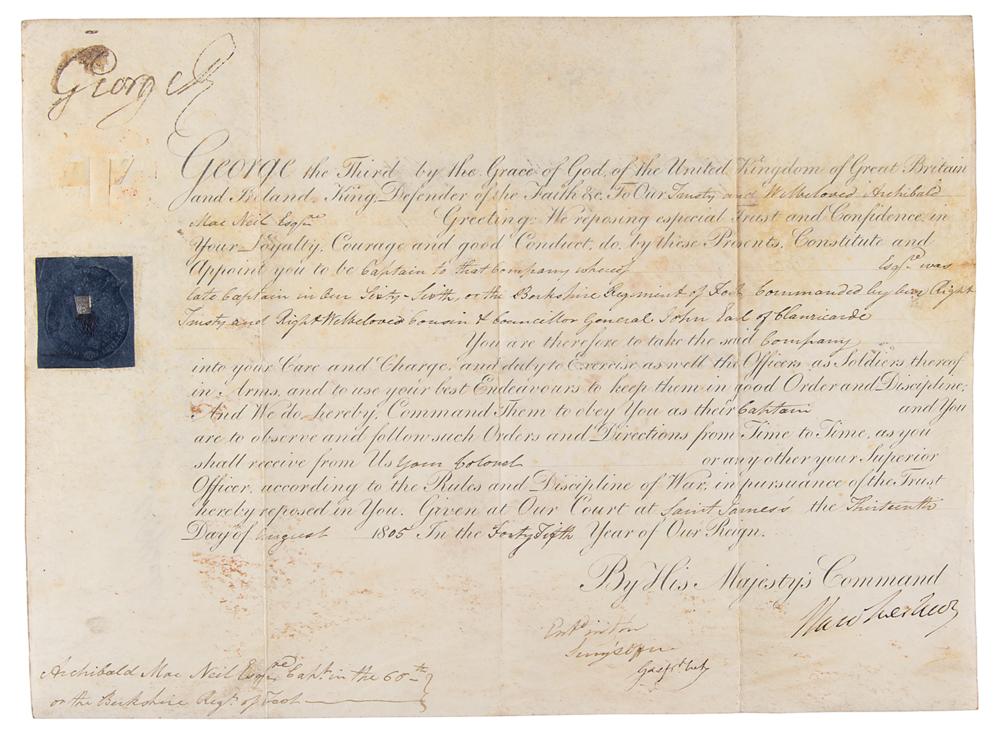 George R
George the Third by the Grace of God, of the United Kingdom of Great Britain
and Ireland King, Defender of the Faith &c. To Our Trusty and Welbeloved Archibald
Mac Neil Esqre Greeting: We reposing especial Trust and Confidence in
Your Loyalty, Courage and good Conduct, do, by these Presents, Constitute and
Appoint you to be Captain to that Company whereof Esqre was
late Captain in Our Sixty-Sixth, or the Berkshire Regiment of Foot Commanded by Our Right
Trusty and Right Welbeloved Cousin & Councillor General John Earl of Clanricarde
You are therefore to take the said Company
into your Care and Charge, and duly to Exercise as well the Officers as Soldiers thereof
in Arms, and to use your best Endeavours to keep them in good Order and Discipline;
And We do hereby Command Them to obey You as their Captain and You
are to observe and follow such Orders and Directions from Time to Time, as you
shall receive from Us your Colonel or any other your Superior
Officer, according to the Rules and Discipline of War, in pursuance of the Trust
hereby reposed in You. Given at Our Court at Saint James's the Thirteenth
Day of August 1805 In the Forty Fifth Year of Our Reign.
By His Majesty's Command
Hawkesbury
Archibald Mac Neil Esqre Captn. in the 66th
or the Berkshire Regt. of Foot